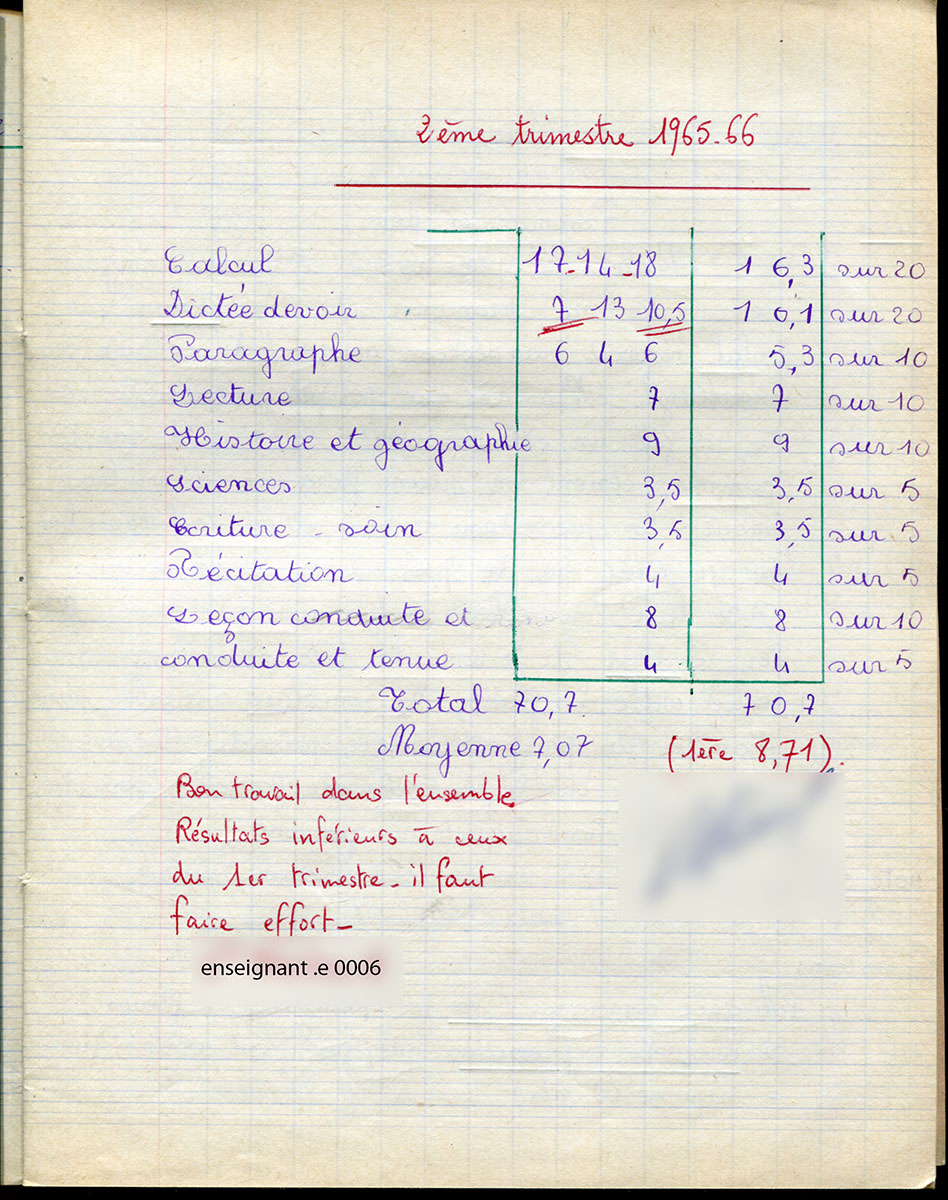 2ème trimestre 1965-66
Calcul 17-14-18 16,3 sur 20
Dictée devoir 7 13 10,5 10,1 sur 20
Paragraphe 6 4 6 5,3 sur 10
Lecture 7 7 sur 10
Histoire et géographie 9 9 sur 10
Sciences 3,5 3,5 sur 5
Ecriture - soin 3,5 3,5 sur 5
Récitation 4 4 sur 5
Leçon conduite et 8 8 sur 10
conduite et tenue 4 4 sur 5
Total 70,7 70,7
Moyenne 7,07 (1ère 8,71).
Bon travail dans l'ensemble
Résultats inférieurs à ceux
du 1er trimestre - il faut
faire effort -
enseignant .e 0006